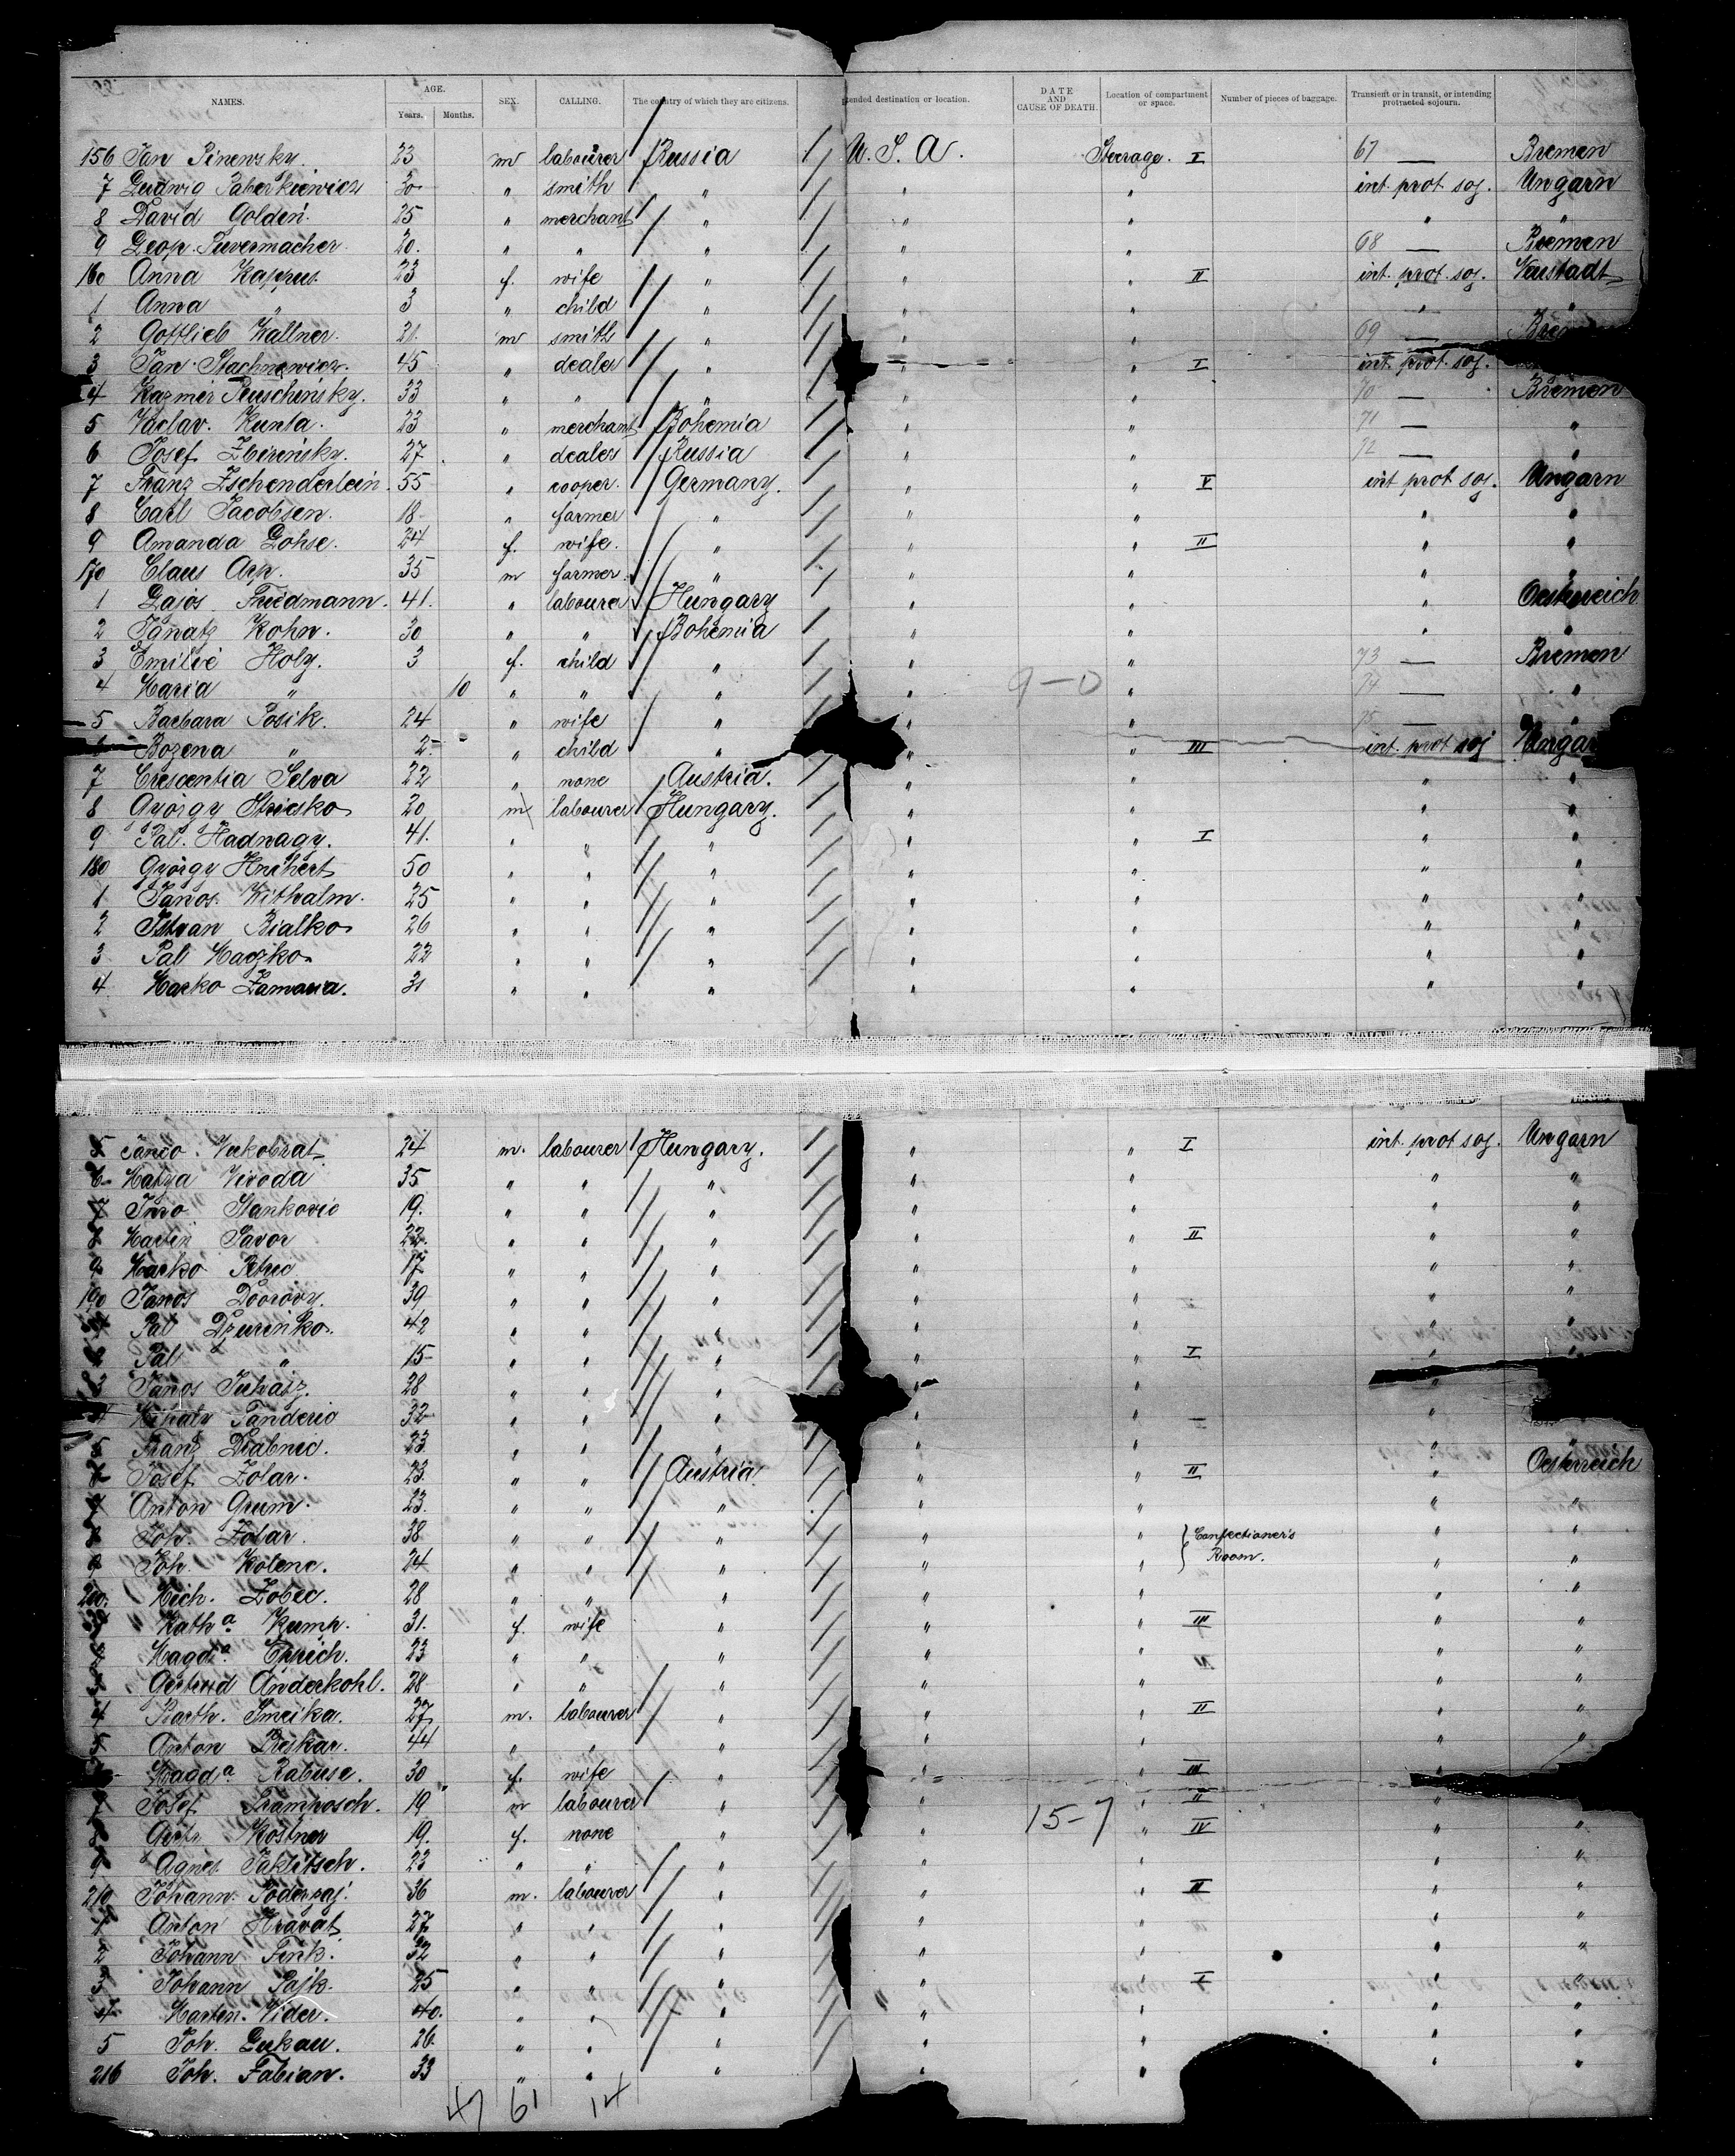 NAMES. AGE. Years. Months. SEX. CALLING. The country of which they are citizens. tended destination or location. DATE AND CAUSE OF DEATH. Location of compartment or space. Number of pieces of baggage. Transient or in transit, or intending protracted sojourn.
156 Jan Pinewsky. 23 m labourer Russia U. S. A. Steerage. I 67 — Bremen
7 Ludwig Paberkiewicz 30 " smith " " " int. prot. soj. Ungarn
8 David Golden. 25 " merchant " " " " "
9 Leop. Puvermacher 20. " " " " " 68 — Bremen
160 Anna Kappus 23 f. wife " " " II int. prot. soj. Neustadt
1 Anna " 3 " child " " " " "
2 Gottlieb Wallner. 21. m smith " " " 69 —
3 Jan Stachnewicz. 45 " dealer " " " I int. prot. soj.
4 Kazmir Puschinsky. 33 " " " " " 70 — Bremen
5 Vaclav. Kunta. 23 " merchant Bohemia " " 71 — "
6 Josef Zbirinsky. 27 " dealer Russia " " 72 — "
7 Franz Zschenderlein. 55 " cooper. Germany. " " V int prot soj. Ungarn
8 Carl Jacobsen. 18 " farmer " " " " "
9 Amanda Lohse. 24 f. wife. " " " II " "
170 Claus Arp. 35 m farmer. " " " " "
1 Lajos Friedmann. 41. " labourer Hungary " " " Oesterreich
2 Ignatz Kohn. 30 " " Bohemia " " " "
3 Emilie Holy. 3 f. child " " " 73 — Bremen
4 Maria " 10 " " " " 9-0 " 74 — "
5 Barbara Posik. 24 " wife " " " 75 — "
6 Bozena " 2 " child " " " III int. prot soj Ungar
7 Crescentia Selva 22 " none Austria. " " " "
8 György Hricsko 20 m labourer Hungary. " " " "
9 Pal. Hadnagy. 41. " " " " " I " "
180 György Hnihert 50 " " " " " " "
1 Janos Withalm. 25 " " " " " " "
2 Istvan Bialko 26 " " " " " " "
3 Pal Maczko 22 " " " " " " "
4 Marko Zamaria. 31 " " " " " " "
5 Janco Vukobrat 24 m. labourer Hungary. " " I int. prot soj. Ungarn
6 Matya Vivoda 35 " " " " " " "
7 Ivo Stankovic 19. " " " " " " "
8 Martin Pavor 22. " " " " " II " "
9 Marko Petric 17 " " " " " " "
190 Janos Doorovy. 39 " " " " " " "
1 Pal Dzurinko. 42 " " " " " " "
2 Pal " 15 " " " " " I " "
3 Janos Juhasz. 28 " " " " " "
4 Mihaly Tanderic 32 " " " " " "
5 Franz Drabnic. 23 " " " " " " "
6 Josef Zolar. 23. " " Austria " " II " Oesterreich
7 Anton Grum. 23. " " " " " " "
8 Joh. Zolar. 38 " " " " " Confectioner's " "
9 Joh. Kolenc. 24 " " " " " Room. " "
200. Mich. Zobec. 28 " " " " " " "
1 Kath.a Kump. 31. f. wife " " " III " "
2 Magd.a Eppich. 23 " " " " " " "
3 Gertrud Anderkohl. 28 " " " " " " "
4 Barth. Smeika. 27 m. labourer " " " II " "
5 Anton Preskar. 44 " " " " " " "
6 Magd.a Rabuse. 30 f. wife " " " III "
7 Josef Stamposch. 19 m labourer " " " II "
8 Gert. Kostner 19. f. none " " 15-7 " IV " "
9 Agnes Jaklitsch. 23 " " " " " " "
210 Johann Poderzaj. 36 m. labourer " " " II " "
1 Anton Hravat 27 " " " " " " "
2 Johann Fink. 32 " " " " " " "
3 Johann Pajk. 25 " " " " " I " "
4 Martin Vider. 40. " " " " " " "
5 Joh. Lukau. 26. " " " " " "
216 Joh. Fabian. 33 " " " " " " "
47 61 14